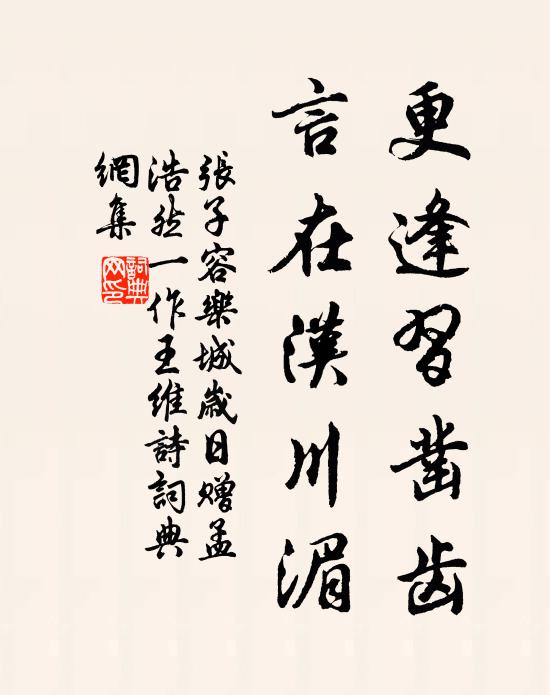 更逢習凿齿
言在漢川湄
張子容樂城歲日赠孟
浩然一作王維詩詞典
網集
詞典
网印